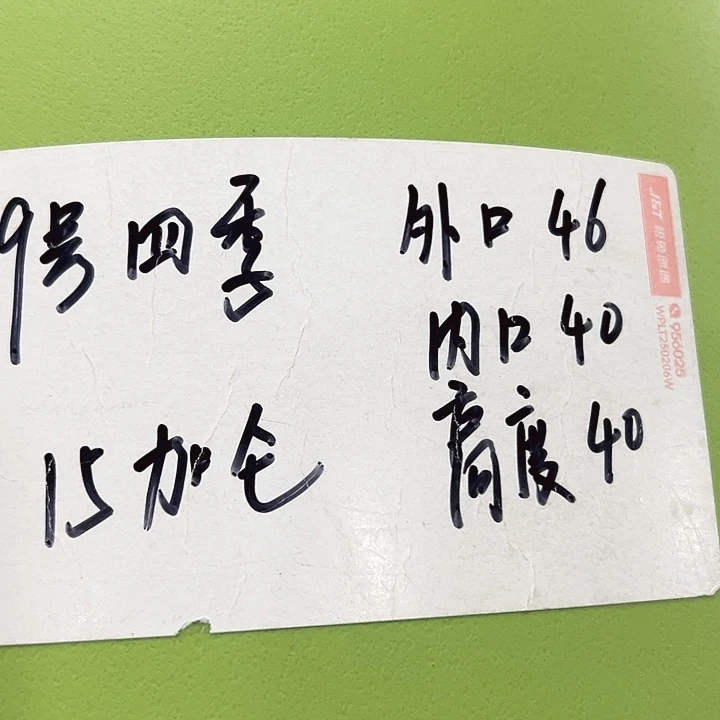 9号四季
15加仑
外口 46
内口 40
高度 40
J&T
956025
WPLT250206W